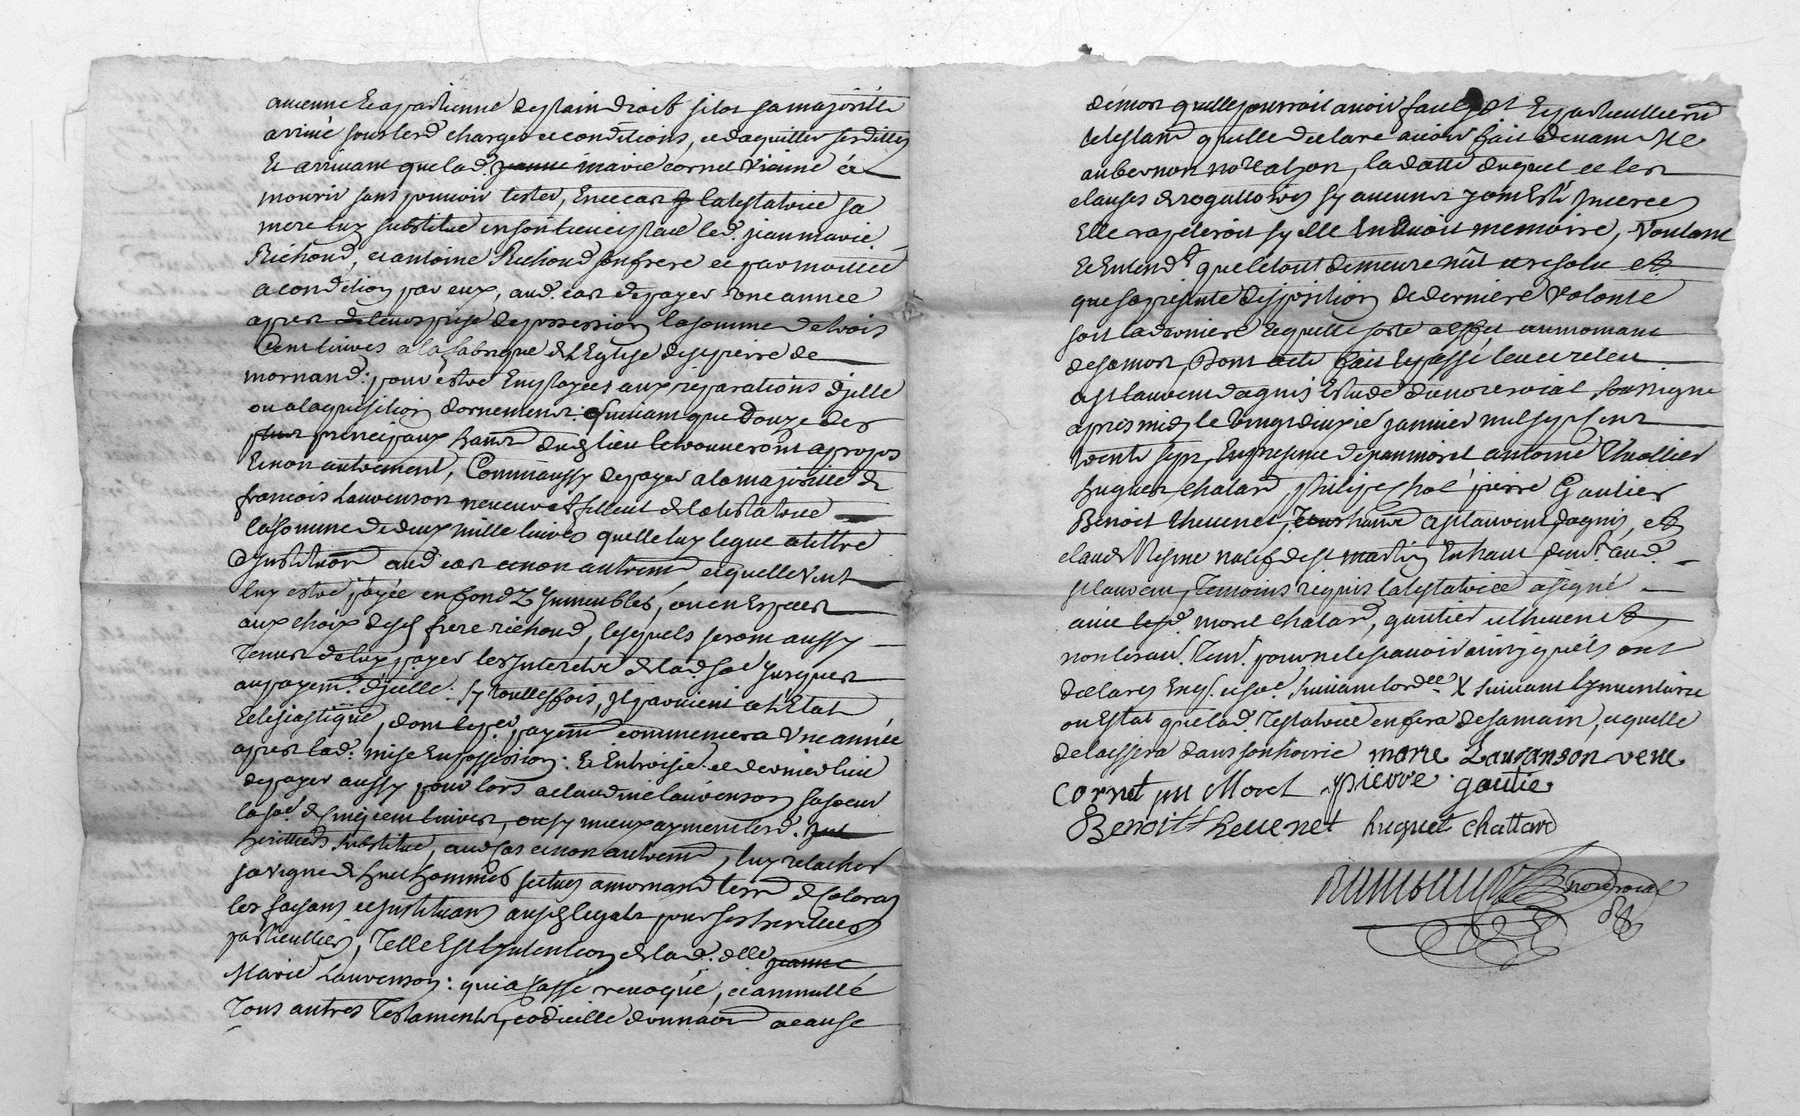 aucenne Et apartienne de plain droit sitot sa majorité
arivée sous lesd. charges et conditions, et daquitter sesdittes
Et arrivant que lad. jeanne marie cornet vienne à
mourir sans pouvoir tester, En ce cas la testatrice sa
mere luy substitue en son lieu et place led. jean marie
Richoud, et antoine Richoud son frere et par moitié
a condition par eux, aud. cas de payer une année
apres de leur prise de possession la somme de trois
Cent livres a la fabrique de L'Eglise de st pierre de
mornand: pour estre Employées aux réparations d'jcelle
ou a laquisition d'ornements suivant que Douze des
plus principaux hants dud. lieu le trouveront apropos
Et non autrement, Comm'aussy de payer a la majorité de
francois Lauvenson neveu et filleul de la testatrice
la somme de deux mille livres quelle luy legue a tittre
d'jnstitution aud. cas et non autremt, et quelle veut
luy estre payée en fondZ jmmeubles, ou en Especes
aux choix desd. frere richoud, lesquels seront aussy
Tenus de luy payer les jnterets de lad. soe jusques
au payemt. d'jcelle: sy touttesfois, jl parvient a L'Etat
Eclesiastique, dont led. payemt commencera Une année
apres lad. mise En possession: Et En troisie. et dernier lieu
de payer aussy pour lors a claudine lauvenson sa soeur
la soe. de cinq cent livres, ou sy mieux ayment lesd.
heritiers substitue, aud. cas et non autremt, luy relacher
sa vigne de huit hommés scitues a mornand terre de
les faisans et jnstituans auxd. legats pour ses heritiers
particulliers, Telle Est L'jntention de lad. delle jeanne
Marie Lauvenson: qui a cassé revoqué, et annullé
Tous autres Testaments, codicille donnaon a cause
de mort quelle pourroit avoir fait Et particullierement
le testamt quelle declare avoir fait devant Me
aubernon nore a lyon, la datte duquel et les
clauses derogattoires sy aucunes y ont Esté Inserées
Elle rapeleroit sy elle En avoit memoire, Voulant
Et Entendt que le tout demeure nul et resolu et
que sa présente disposition de derniere Volonté
soit la derniere Et quelle sorte a effet au momant
de sa mort, Dont acte fait Et passé leu et releu
a st laurent dagnis Estude du nore roial soussigné
apres midy le vingt deuxie janvier mil sept cent
trente sept, En presence de jean morel antoine Thollier
hugues chatard pierre Gautier
Benoit Thevenet, Tous hants a st laurent dagnis, et
claude natif de st martin En haut demt. aud.
st laurent, Temoins requis la testatrice a signé
avec lesd. morel chatard, gautier et thevenet
non les au. Tem. pour ne le scavoir ainsy quils ont
declarés Enq. et soe. suivant lordee. X suivant L'jnventaire
ou Estat que lad. Testatrice en fera de sa main, et quelle
delaissera dans son hoirie marie Lauvanson veue
cornet jn Morel pierre gautie
Benoit Thevenet huguet chattard
nore roial